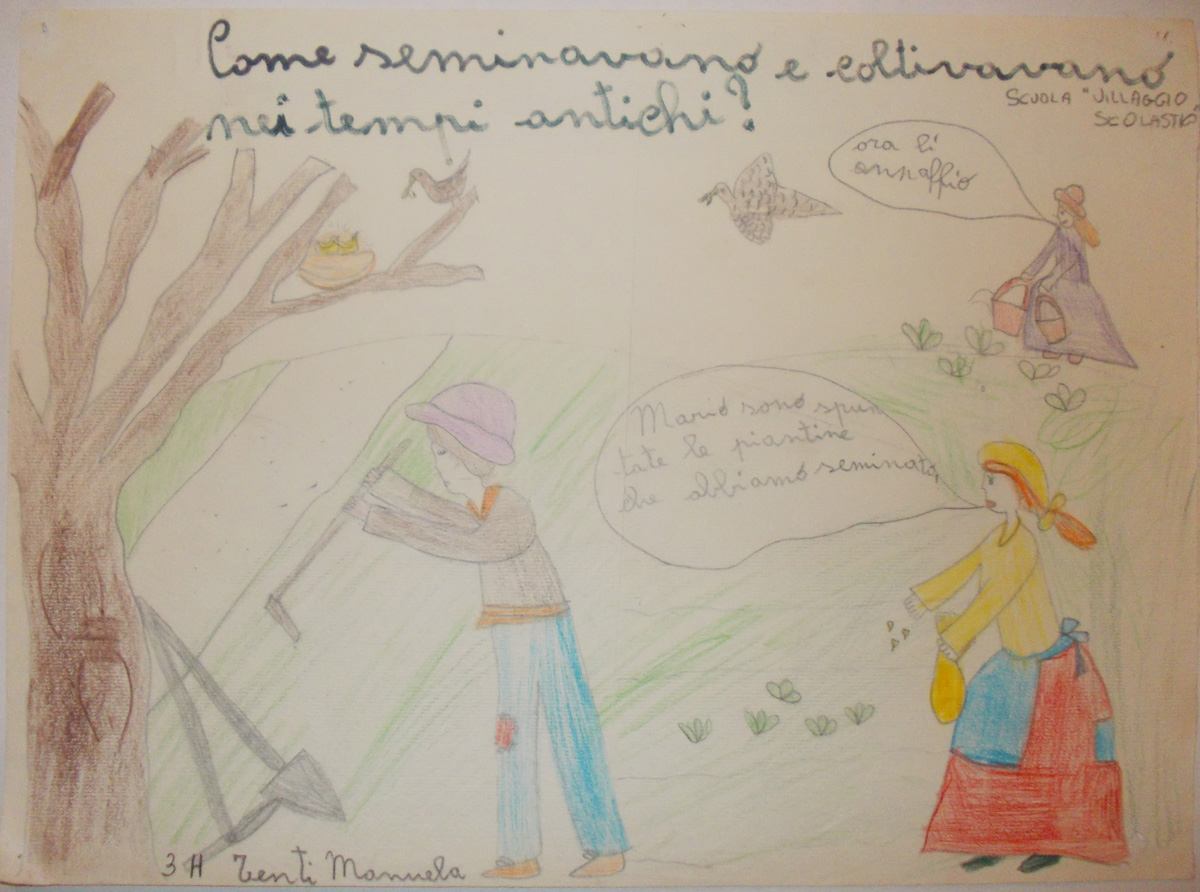 Come seminavano e coltivavano
nei tempi antichi?
SCUOLA "VILLAGGIO
SCOLASTICO
ora li
annaffio
Mario sono spun
tate le piantine
che abbiamo seminato,
3 H Tenti Manuela